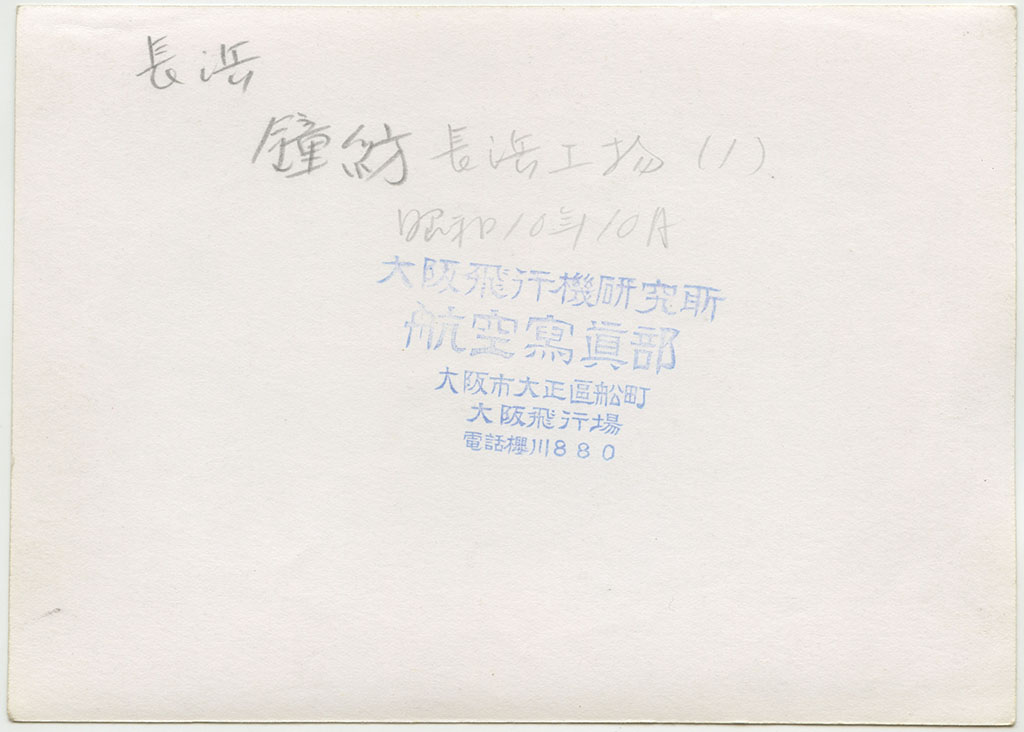 長浜
鐘紡 長浜工場 (1)
昭和10年10月
大阪飛行機研究所
航空寫眞部
大阪市大正區船町
大阪飛行場
電話櫻川880